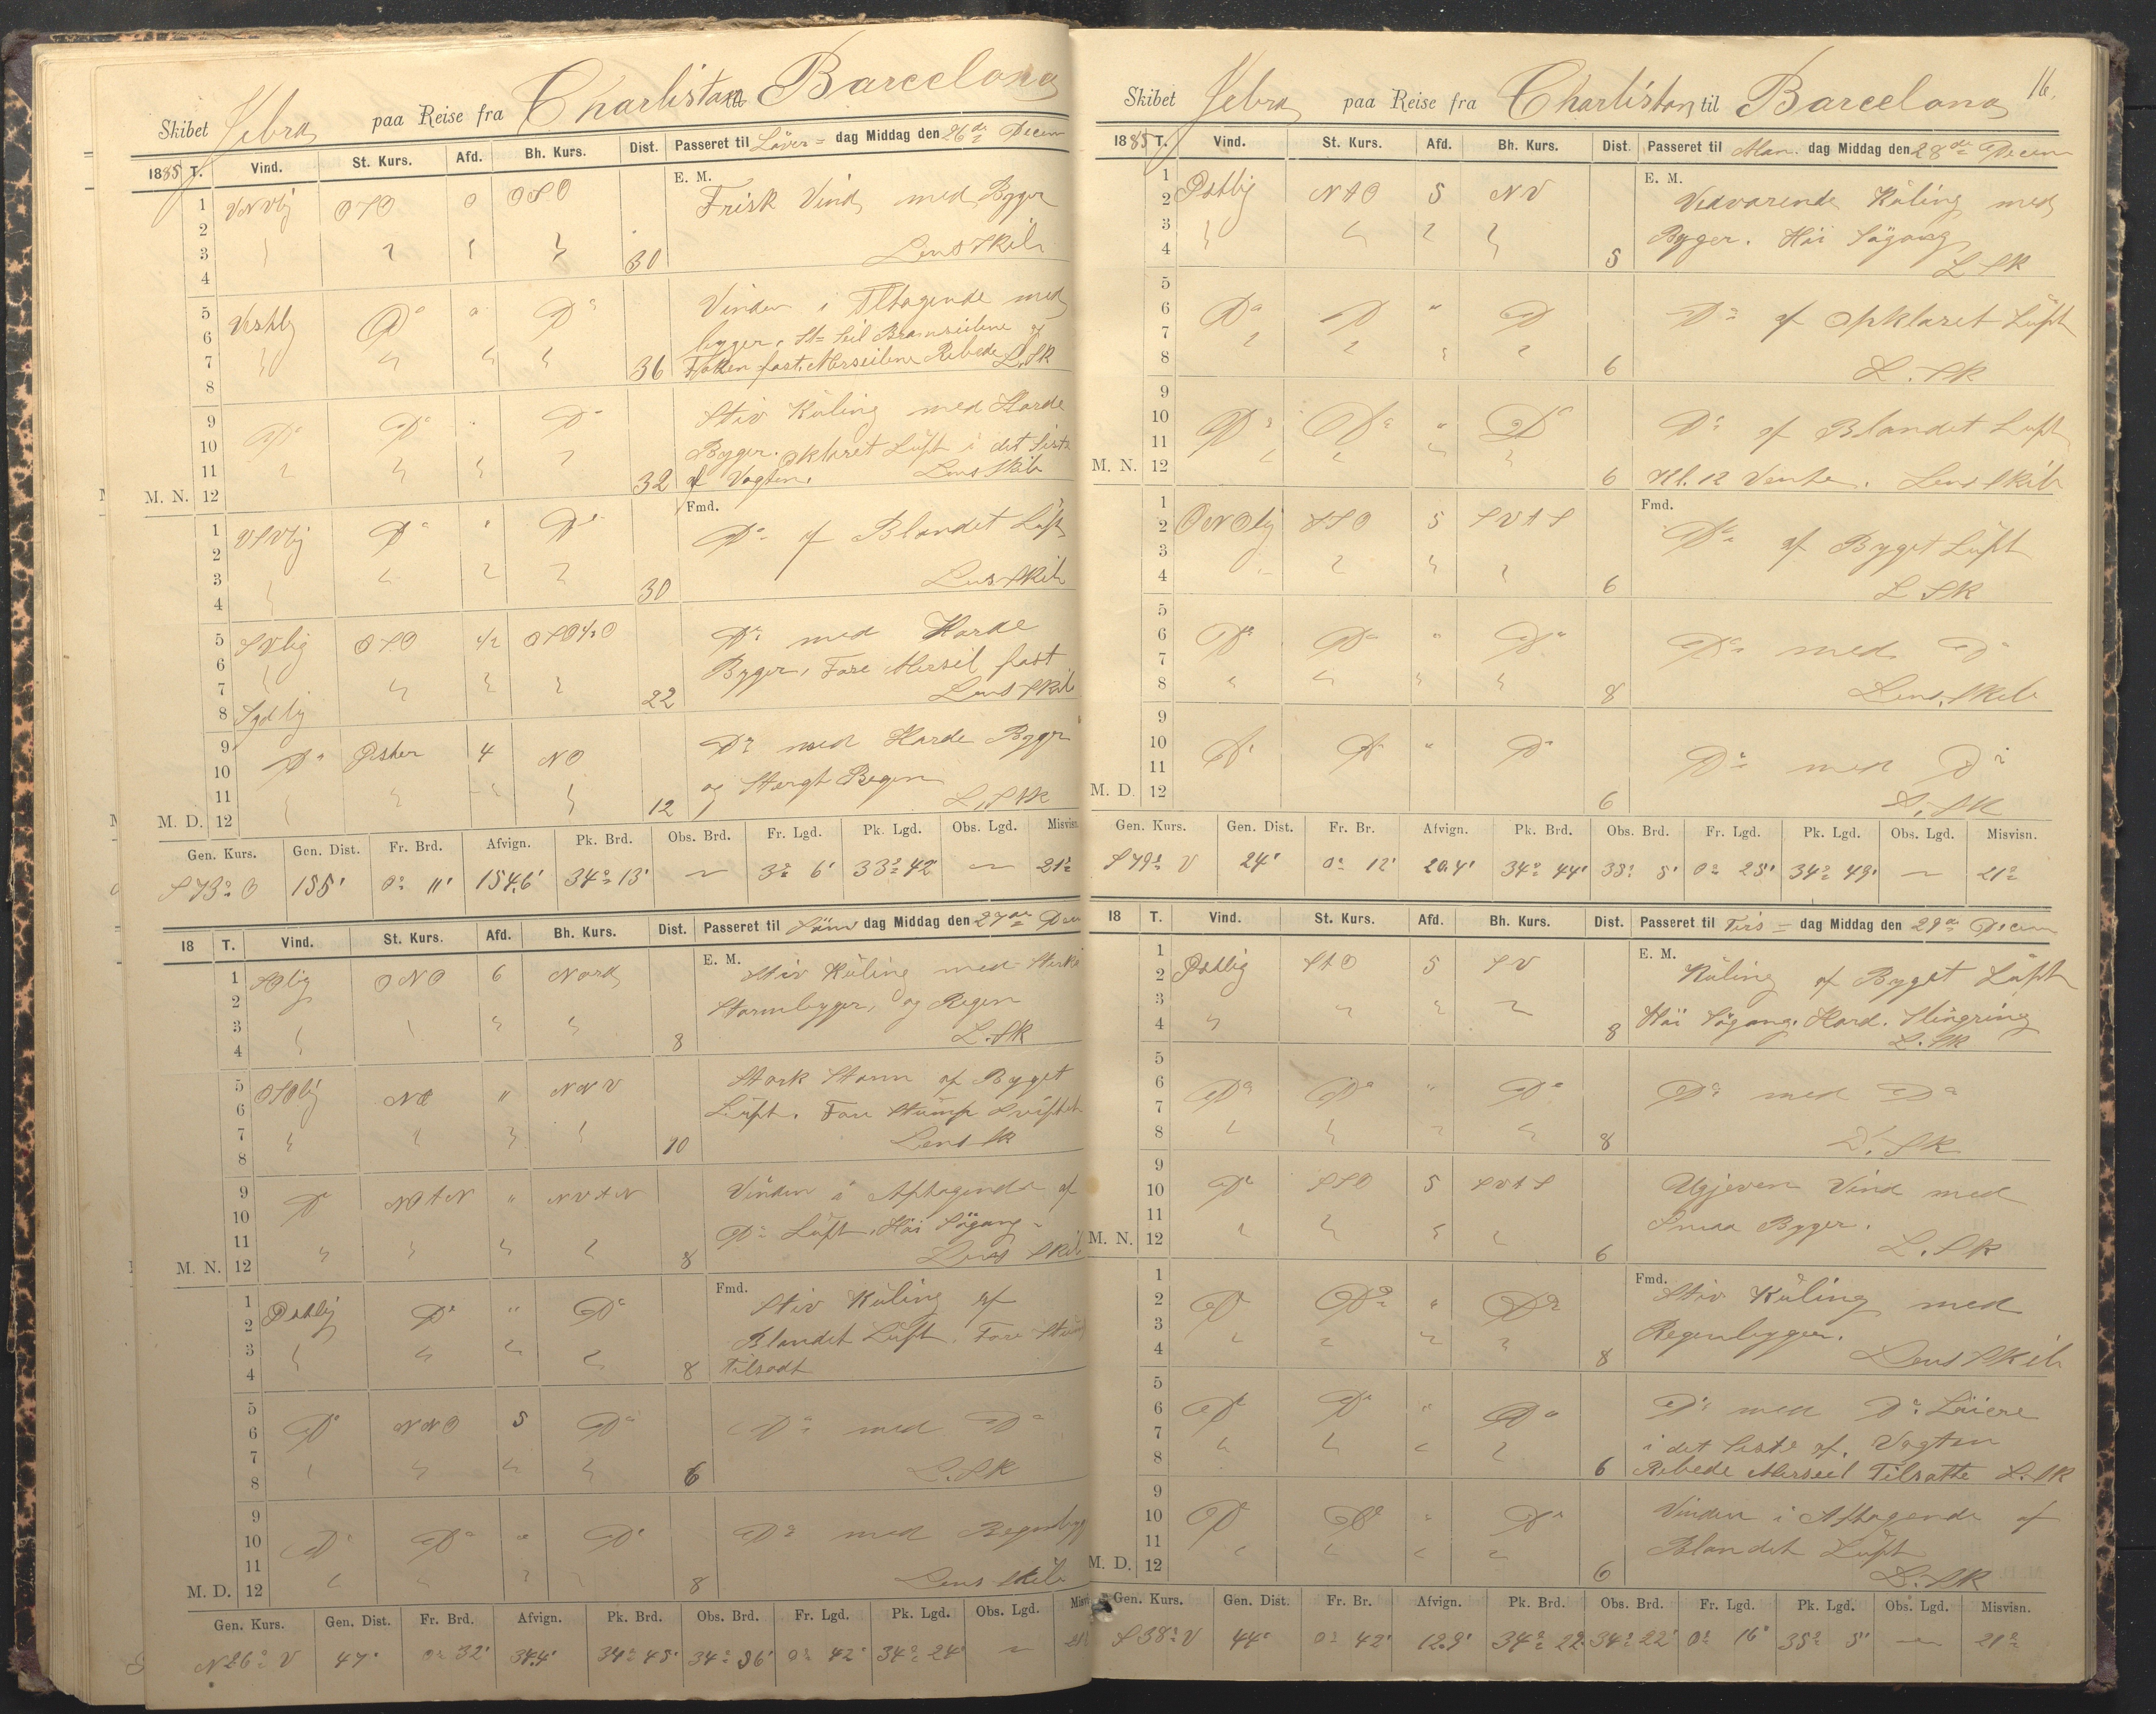 Skibet Hebra paa Reise fra Charlistan til Barcelona
1885 T. Vind. St. Kurs. Afd. Bh. Kurs. Dist. Passeret til Löver= dag Middag den 26de Decem
E. M.
1 VNVlig OSO 0 OSO Frisk Vind med Byger
2
3 30 Lens Skib
4
5 Vestlig Do " Do Vinden i Tiltagende med
6 byger. St= Seil Bramseilene og
7 36 Fokken fast. Merseilene Rebede L. SK
8
9 Do Do " Do Stiv Kuling med Harde
10 Byger. Opklaret Luft i det Siste
11 32 af Vagten. Lens Skib
M. N. 12
Fmd.
1 VSVlig Do " Do Do af Blandet Luft
2
3 30 Lens Skib
4
5 SVlig OSO 1/2 OSO1/2O Do med Harde
6 Byger, Fore Merseil fast
7 22 Lens Skib
8 Sydlig
9 Do Öster 4 NO Do med Harde Byger
10 og Stergt Regen
11 12 L. SK
M. D. 12
Gen. Kurs. Gen. Dist. Fr. Brd. Afvign. Pk. Brd. Obs. Brd. Fr. Lgd. Pk. Lgd. Obs. Lgd. Misvisn.
S73° O 155' 0° 11' 154.6' 34° 13' — 3° 6' 33° 42' — 21°
18 T. Vind. St. Kurs. Afd. Bh. Kurs. Dist. Passeret til Sön= dag Middag den 27de Dec
E. M.
1 SOlig ONO 6 Nord Stiv Kuling med Sterke
2 Stormbyger, og Regen
3 8 L. SK
4
5 OSOlig NO " NNV Stærk Storm af Byget
6 Luft. Fore Stump
7 10 Lens Sk
8
9 Do NOtN " NVtN Vinden i Aftagende af
10 Do Luft. Höi Sögang
11 8 Lens Skib
M. N. 12
Fmd.
1 Ostlig Do " Do Stiv Kuling af
2 Blandet Luft. Fore Stump
3 8 Tilsadt
4
5 Do NNO 5 Do Do med Do
6
7 6 L. SK
8
9 Do Do " Do Do med Regenbyg
10
11 8 Lens Skib
M. D. 12
Gen. Kurs. Gen. Dist. Fr. Brd. Afvign. Pk. Brd. Obs. Brd. Fr. Lgd. Pk. Lgd. Obs. Lgd. Misvi
N26° V 47' 0° 32' 34.4' 34° 45' 34° 56' 0° 42' 34° 24' — 21
16.
Skibet Hebra paa Reise fra Charlistan til Barcelona
1885 T. Vind. St. Kurs. Afd. Bh. Kurs. Dist. Passeret til Man. dag Middag den 28de Decem
E. M.
1 Ostlig NtO 5 NV Vedvarende Kuling med
2
3 Byger. Höi Sögang
4 5 L. SK
5
6 Do D " D Do af Opklaret Luft
7
8 6 L. SK
9
10 Do Do " Do Do af Blandet Luft
11
M. N. 12 6 Kl. 12 Vente. Lens Skib
Fmd.
1
2 ONOlig SSO 5 SVtS Do af Byget Luft
3
4 6 L. SK
5
6 Do Do " Do Do med Do
7
8 8 Lens Skib
9
10 Do Do " Do Do med Do
11
M. D. 12 6 L. SK
Gen. Kurs. Gen. Dist. Fr. Br. Afvign. Pk. Brd. Obs. Brd. Fr. Lgd. Pk. Lgd. Obs. Lgd. Misvisn.
S79° V 24' 0° 12' 20.4' 34° 44' 35° 5' 0° 25' 34° 49' — 21°
18 T. Vind. St. Kurs. Afd. Bh. Kurs. Dist. Passeret til Tirs= dag Middag den 29de Decem
E. M.
1 Kuling af Byget Luft
2 Ostlig StO 5 SV
3 Höi Sögang. Hard. Slingring
4 8 L. SK
5
6 Do Do " Do Do med Do
7
8 8 L. SK
9
10 Do SSO 5 SVtS Ugjeven Vind med
11 Smaa Byger.
M. N. 12 6 L. SK
Fmd.
1 Stiv Kuling med
2 Do Do " Do
3 Regenbyger.
4 8 Lens Skib
5
6 Do Do " Do Do med Do Löiere
7 i det Siste af. Vagten
8 6 Rebede Merseil Tilsatte L. SK
9
10 Do Do " Do Vinden i Aftagende af
11 Blandet Luft
M. D. 12 6 L. SK
Gen. Kurs. Gen. Dist. Fr. Br. Afvign. Pk. Brd. Obs. Brd. Fr. Lgd. Pk. Lgd. Obs. Lgd. Misvisn.
S38° V 44' 0° 42' 12.9' 34° 22' 34° 22' 0° 16' 35° 5' — 21°